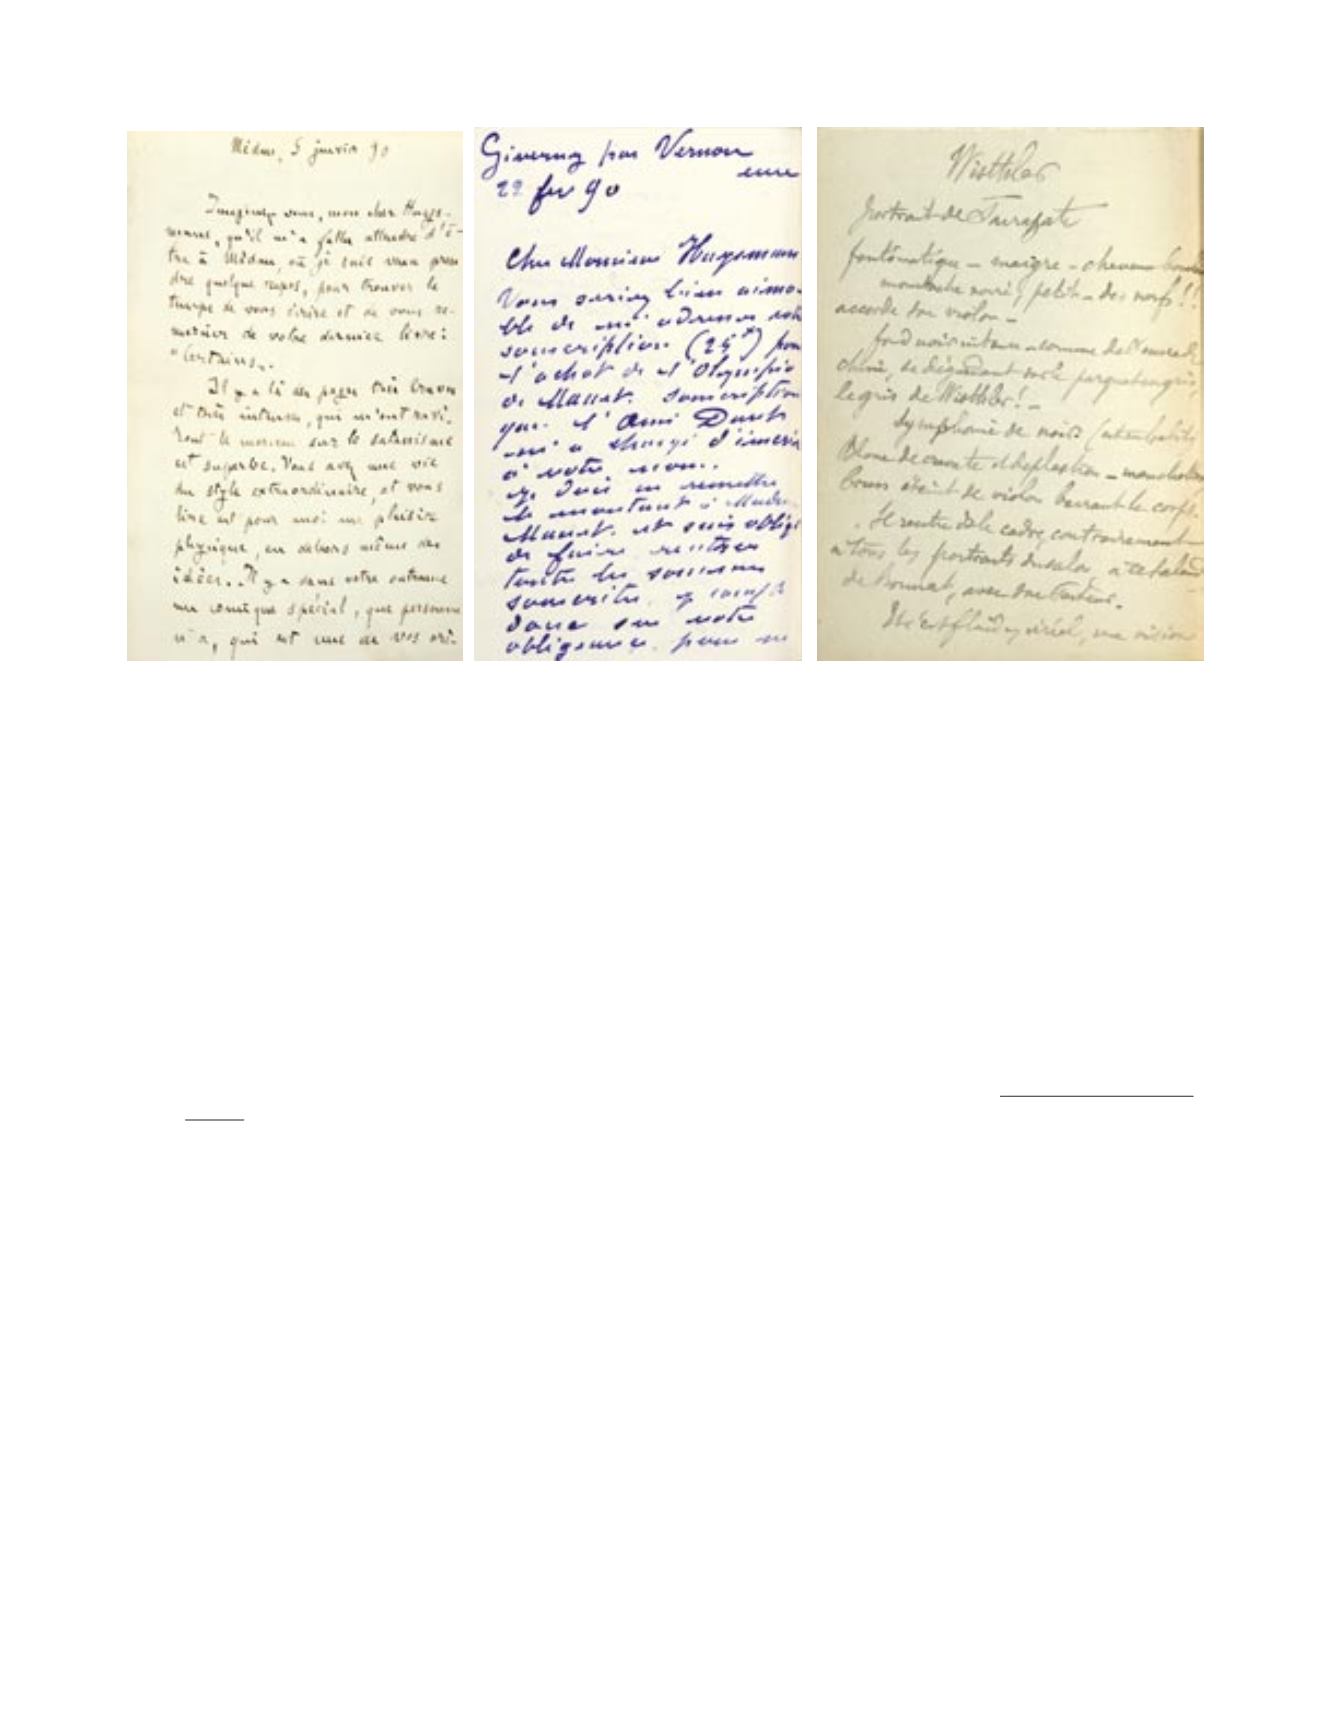 Médan, 5 janvier 90
Imaginez-vous, mon cher Huys-
mans, qu'il m'a fallu attendre d'ê-
tre à Médan, où je suis venu pren
dre quelque repos, pour trouver le
temps de vous écrire et de vous re-
mercier de votre dernier livre:
"Certains".
Il y a là des pages très braves
et très intenses, qui m'ont ravi.
Tout le morceau sur le satanisme
est superbe. Vous avez une vie
du style extraordinaire, et vous
lire est pour moi un plaisir
physique, en dehors même des
idées. Il y a dans votre outrance
un comique spécial, que personne
n'a, qui est une de vos ori-
Giverny par Vernon
eure
22 fev 90
Cher Monsieur Huysmans
Vous seriez bien aima-
ble de m'adresser votre
souscription (25 f) pour
l'achat de l'Olympia
de Manet. Souscription
que l'ami
m'a chargé d'inscrire
à votre nom.
Je dois en remettre
le montant à Madame
Manet. et suis obligé
de faire rentrer
toutes les sommes
souscrites. je compte
donc sur votre
obligeance pour me
Wisthler
Portrait de Sarasate
fantômatique - maigre - cheveux
moustache noire, petit - des nerfs!!
accorde son violon -
fond noir intense - comme de l'encre de
chine, se dégradant sur le parquet en gris,
le gris de Wisthler! -
Symphonie de noirs
Blanc de cravate et de plastron -
brun éteint de violon barrant le corps.
Se rentre ds le cadre, contrairement
à tous les portraits du salon
de Bonnat, avec son Pasteur.
Ici c'est fluide, irréel, une vision